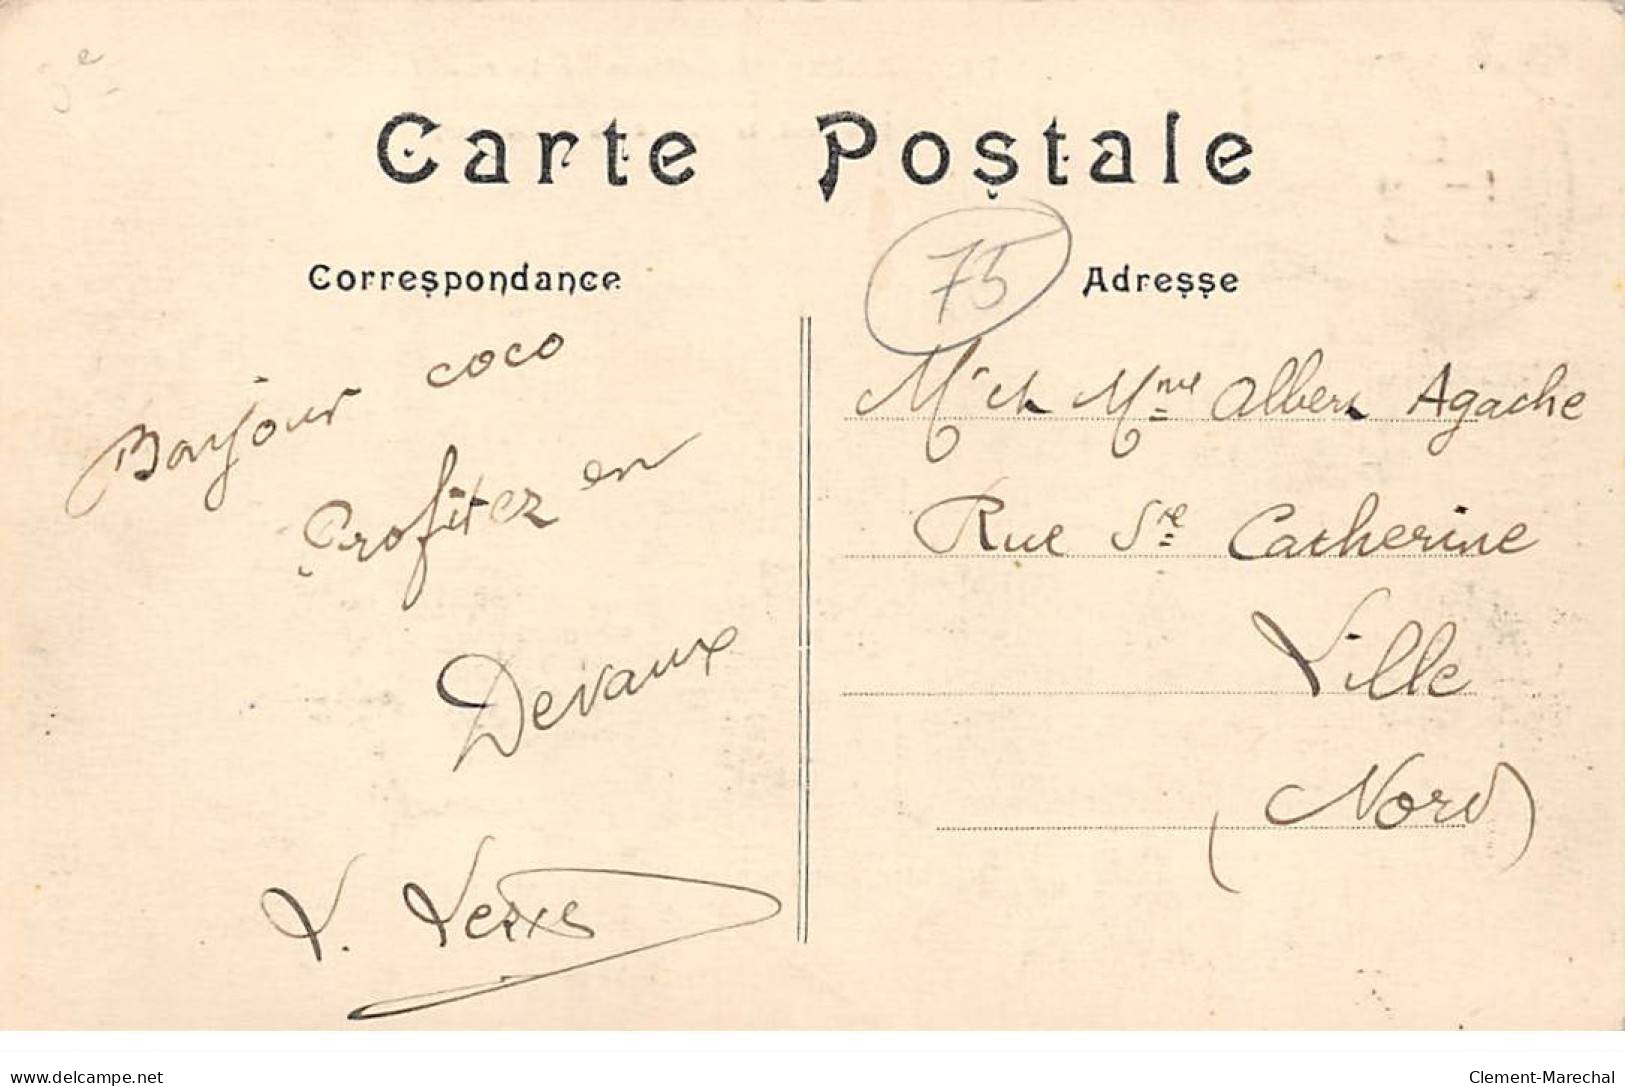 3e
Carte Postale
Correspondance
75
Adresse
Bonjour coco
Profitez en
Devaux
V.
Mr et Mme Albert Agache
Rue Ste Catherine
Lille
(Nord)
www.delcampe.net
Clement-Marechal